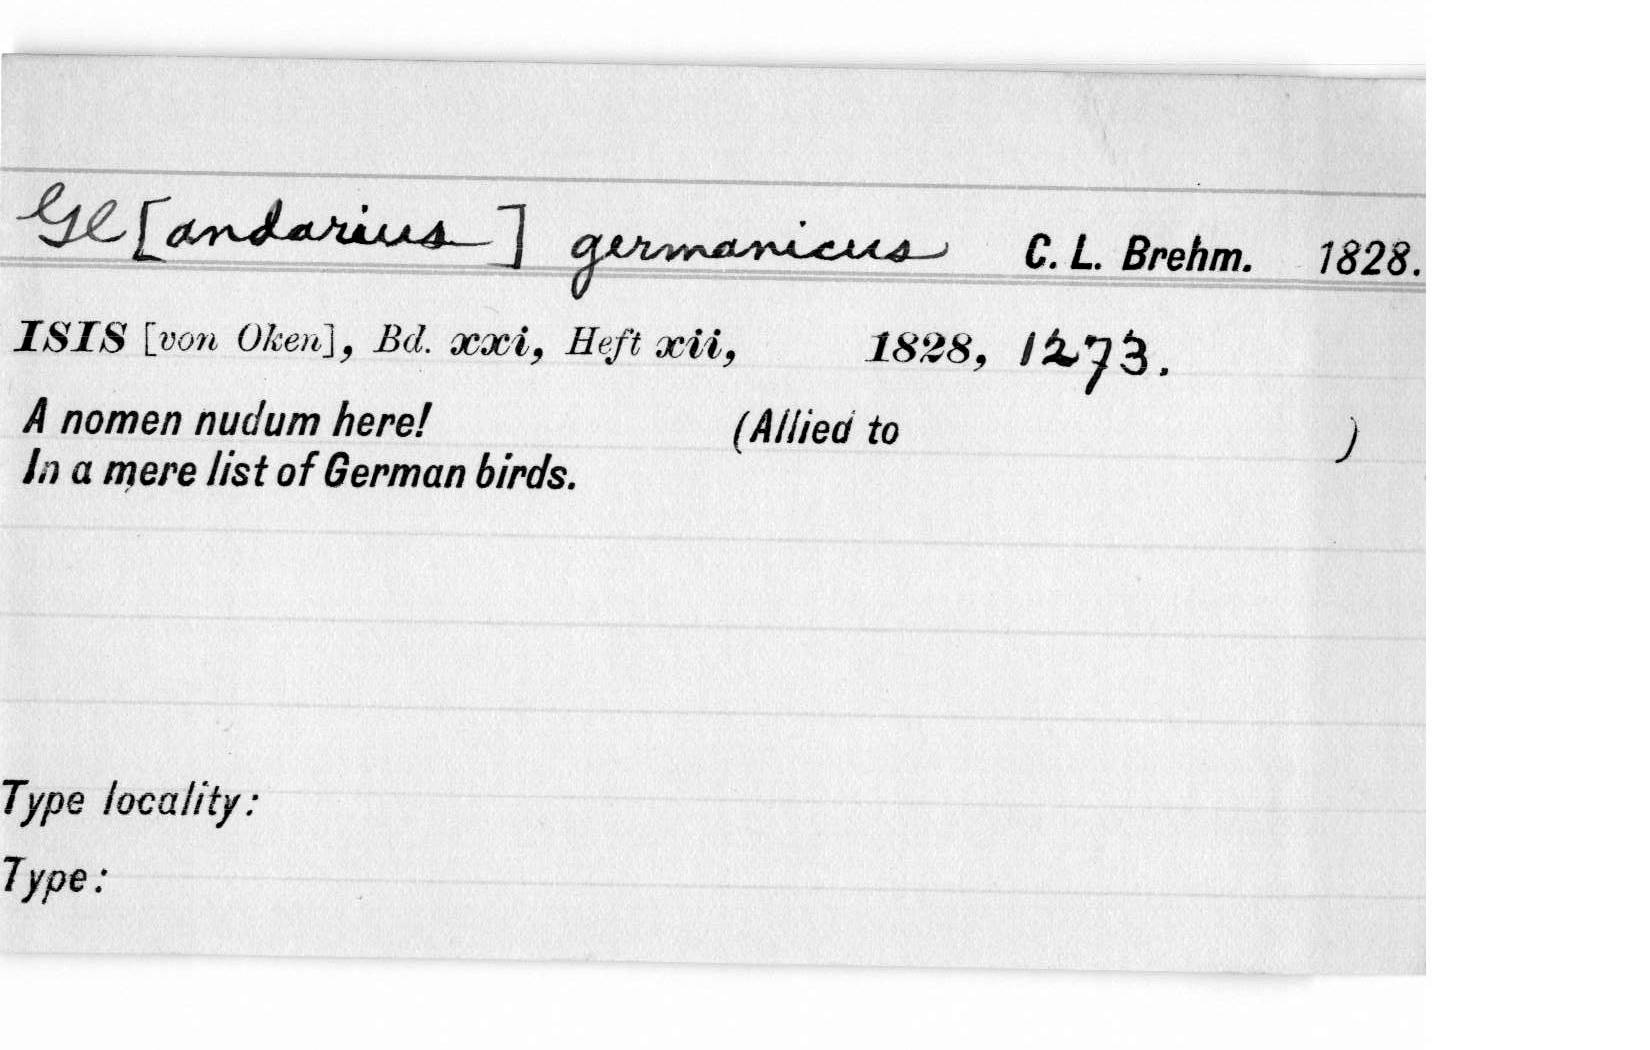 Gl[andarius] germanicus C. L. Brehm. 1828.
ISIS [von Oken], Bd. xxi, Heft xii, 1828, 1273.
A nomen nudum here! (Allied to )
In a mere list of German birds.
Type locality:
Type: